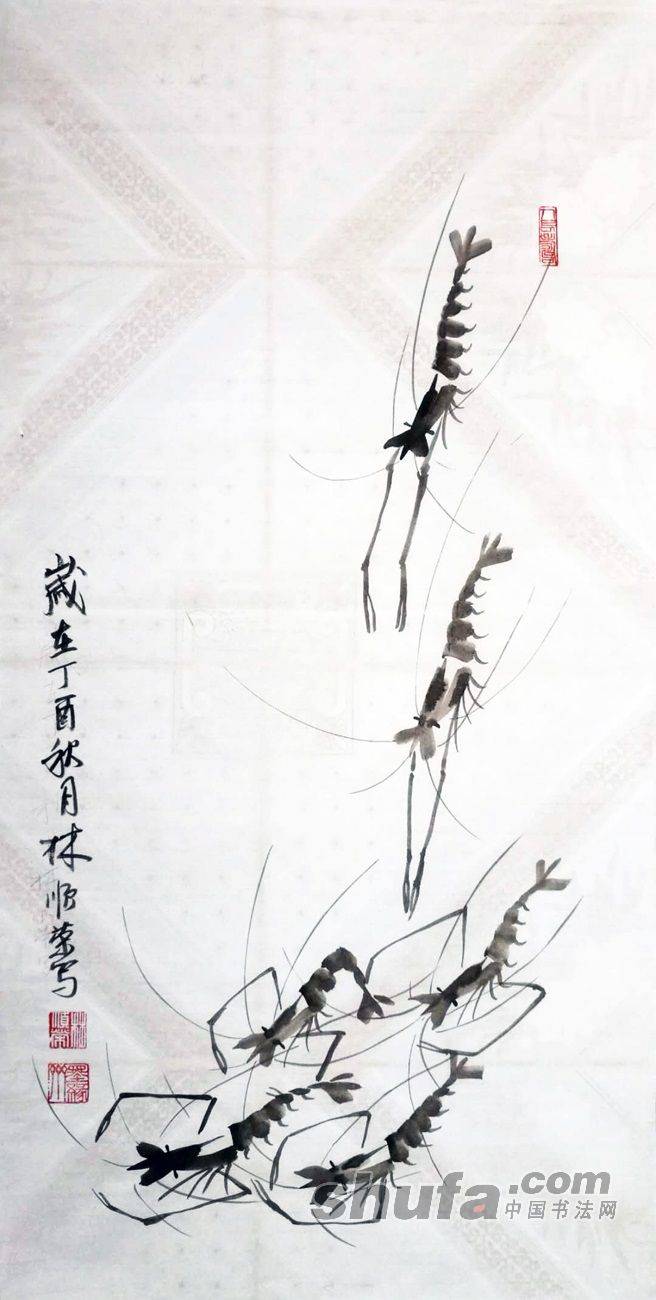 歲在丁酉秋月林順荣写
shufa.com
中国书法网